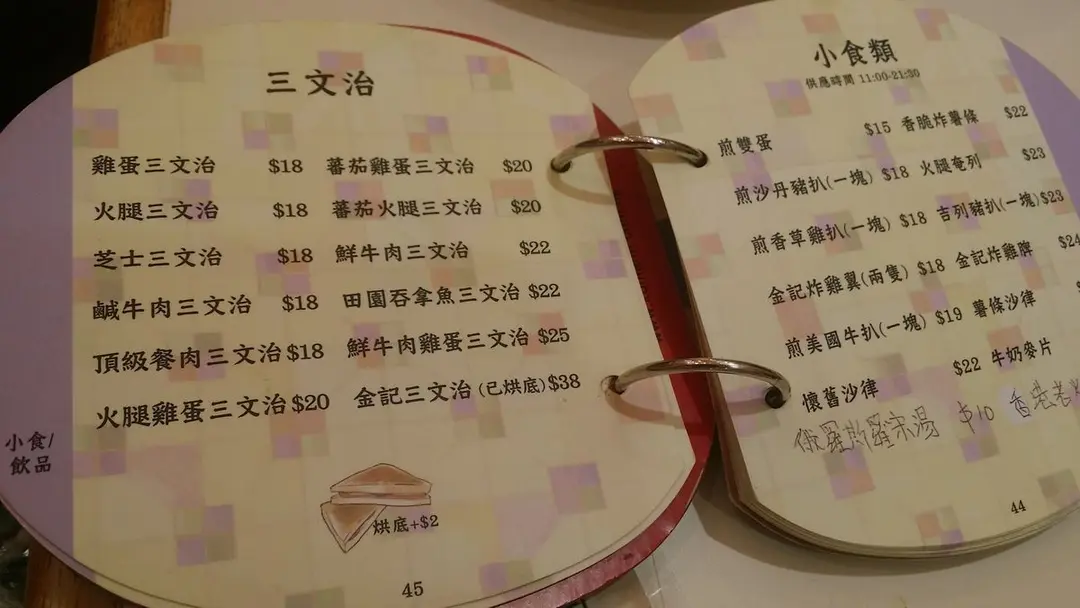 三文治
雞蛋三文治 $18 蕃茄雞蛋三文治 $20
火腿三文治 $18 蕃茄火腿三文治 $20
芝士三文治 $18 鮮牛肉三文治 $22
鹹牛肉三文治 $18 田園吞拿魚三文治 $22
頂級餐肉三文治 $18 鮮牛肉雞蛋三文治 $25
火腿雞蛋三文治 $20 金記三文治 (已烘底) $38
小食/
飲品
烘底+$2
45
小食類
供應時間 11:00-21:30
煎雙蛋 $15 香脆炸薯條 $22
煎沙丹豬扒(一塊) $18 火腿奄列 $23
煎香草雞扒(一塊) $18 吉列豬扒(一塊) $23
金記炸雞翼(兩隻) $18 金記炸雞髀 $24
煎美國牛扒(一塊) $19 薯條沙律
懷舊沙律 $22 牛奶麥片
俄羅斯羅宋湯 $10 香港老
44